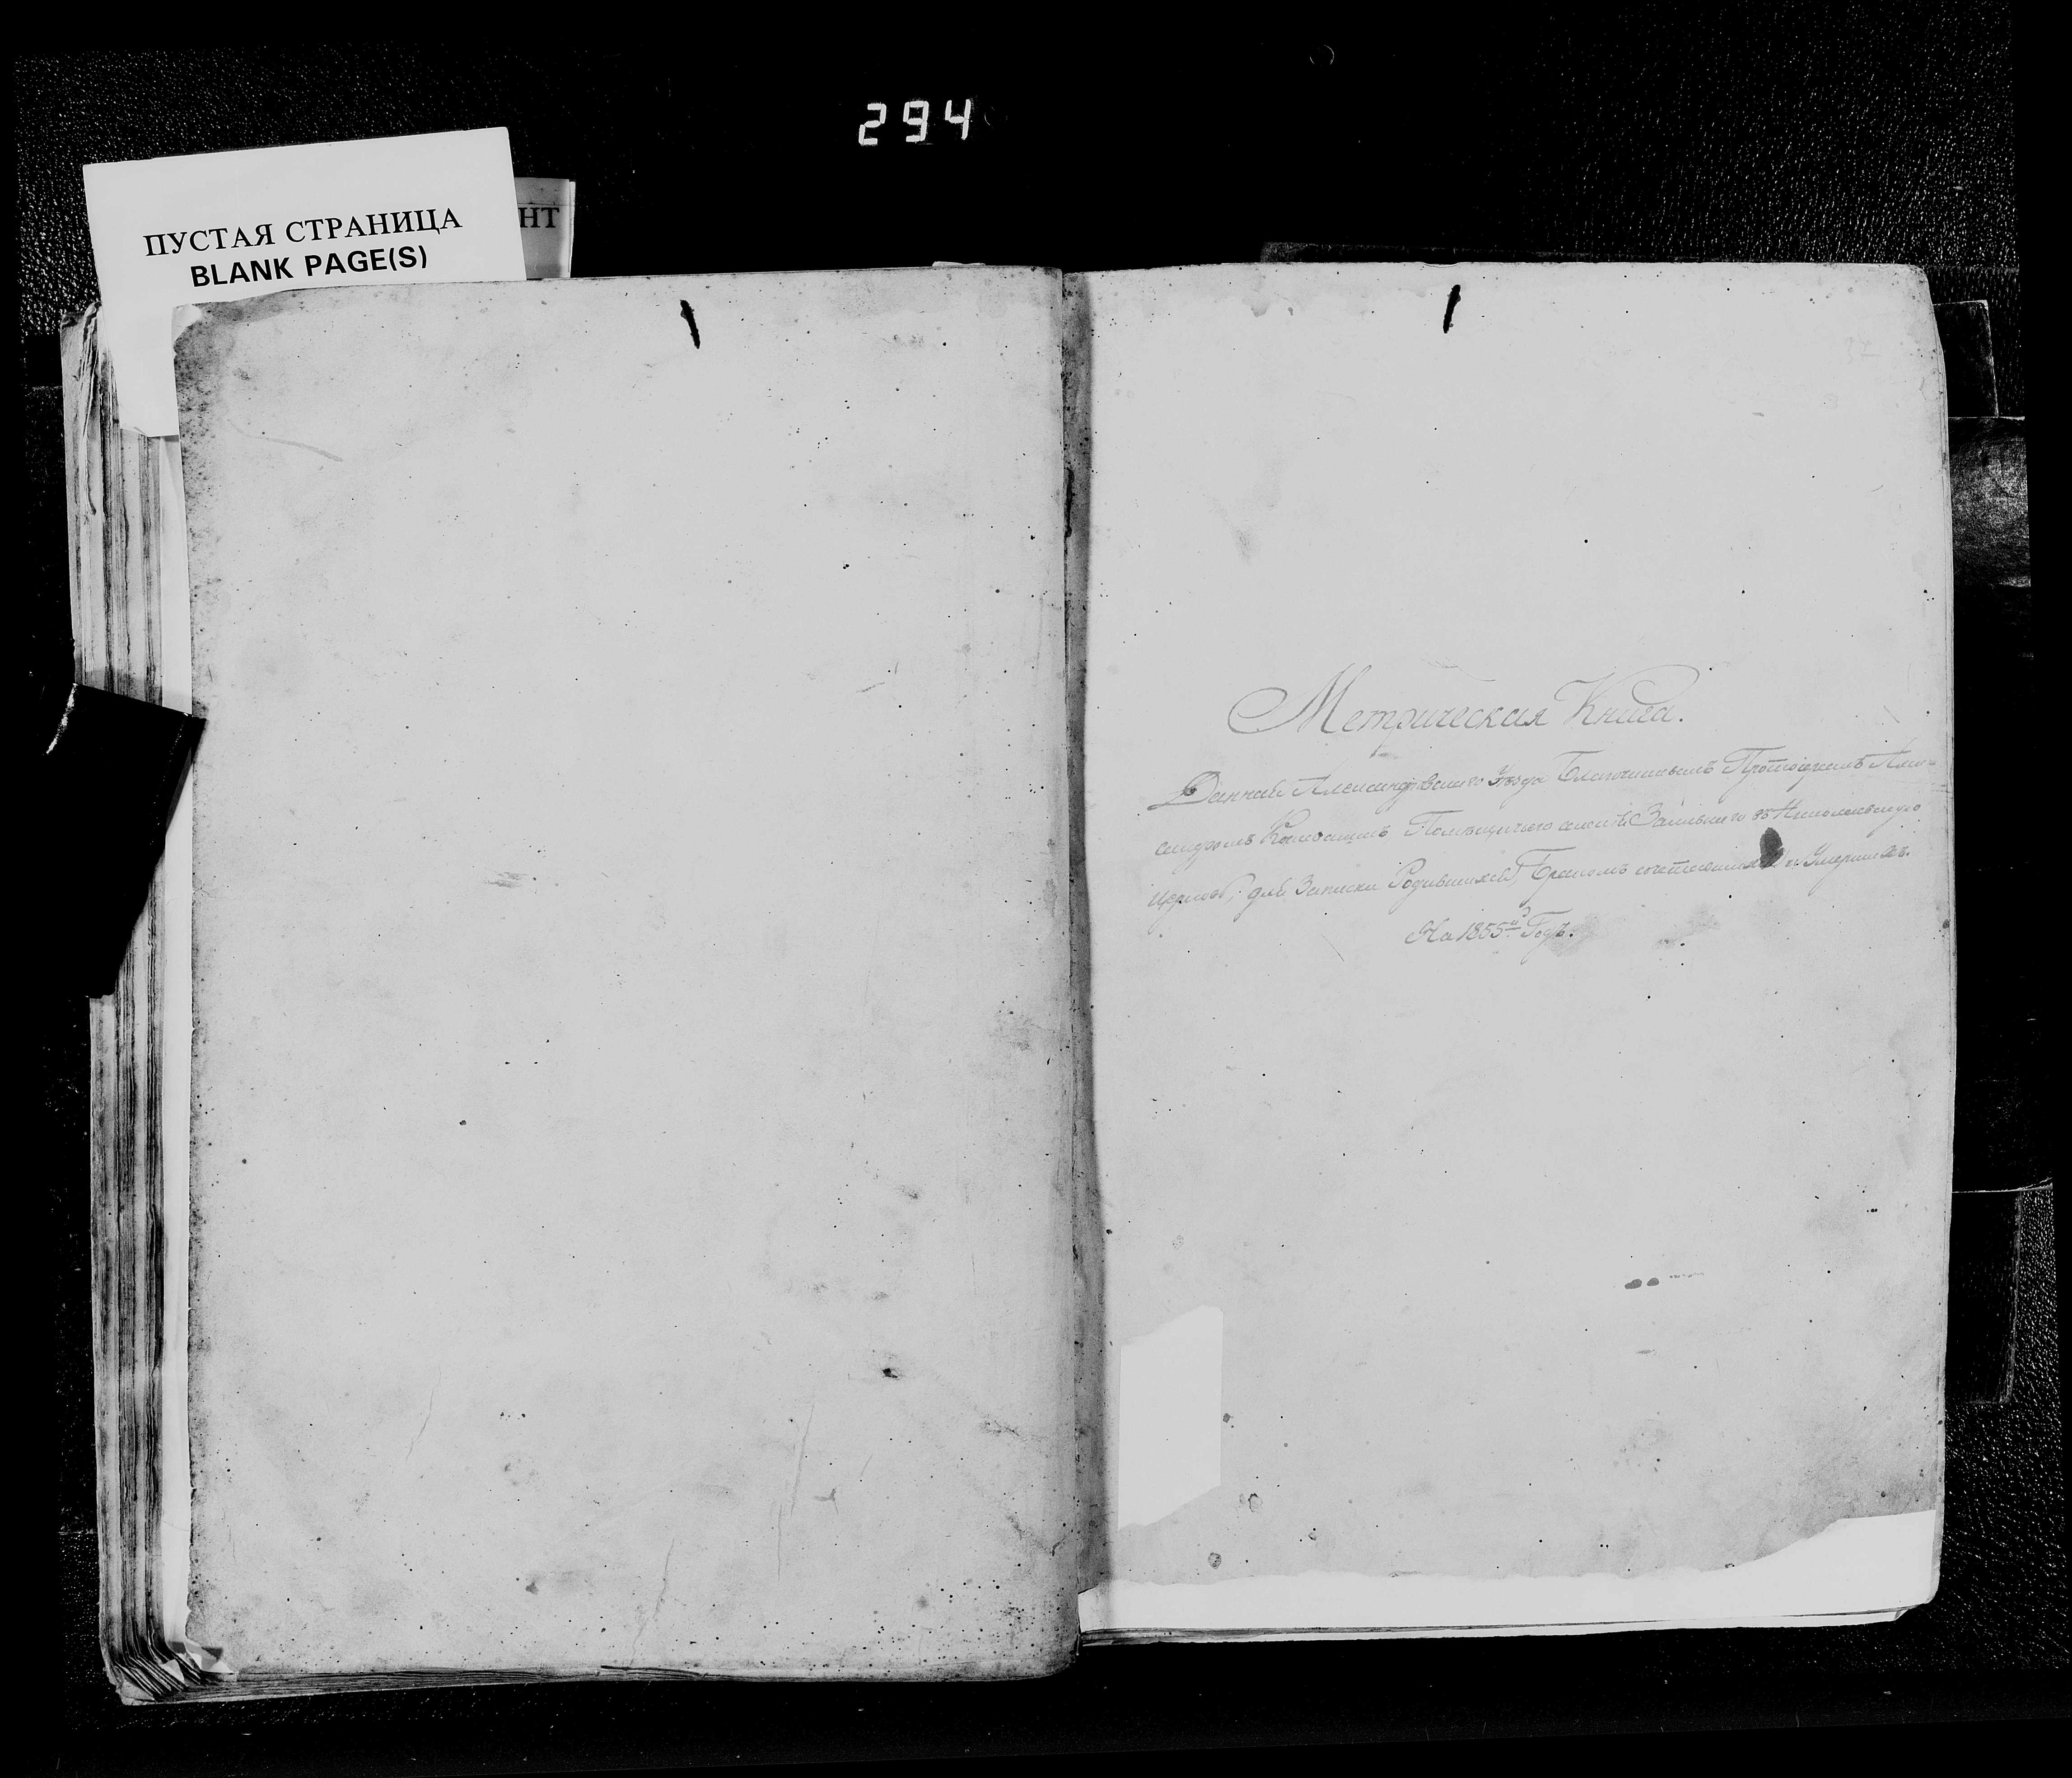 294
ПУСТАЯ СТРАНИЦА
BLANK PAGE(S)
НТ
Метрическая Книга.
Данная Александровскаго Уѣзда Благочиннымъ Протоіереемъ Алек-
сандромъ Помѣщичьяго въ Николаевскую
Церковь, для Записки Родившихся, Бракомъ сочетавшихся и Умершихъ.
На 1855й Годъ.